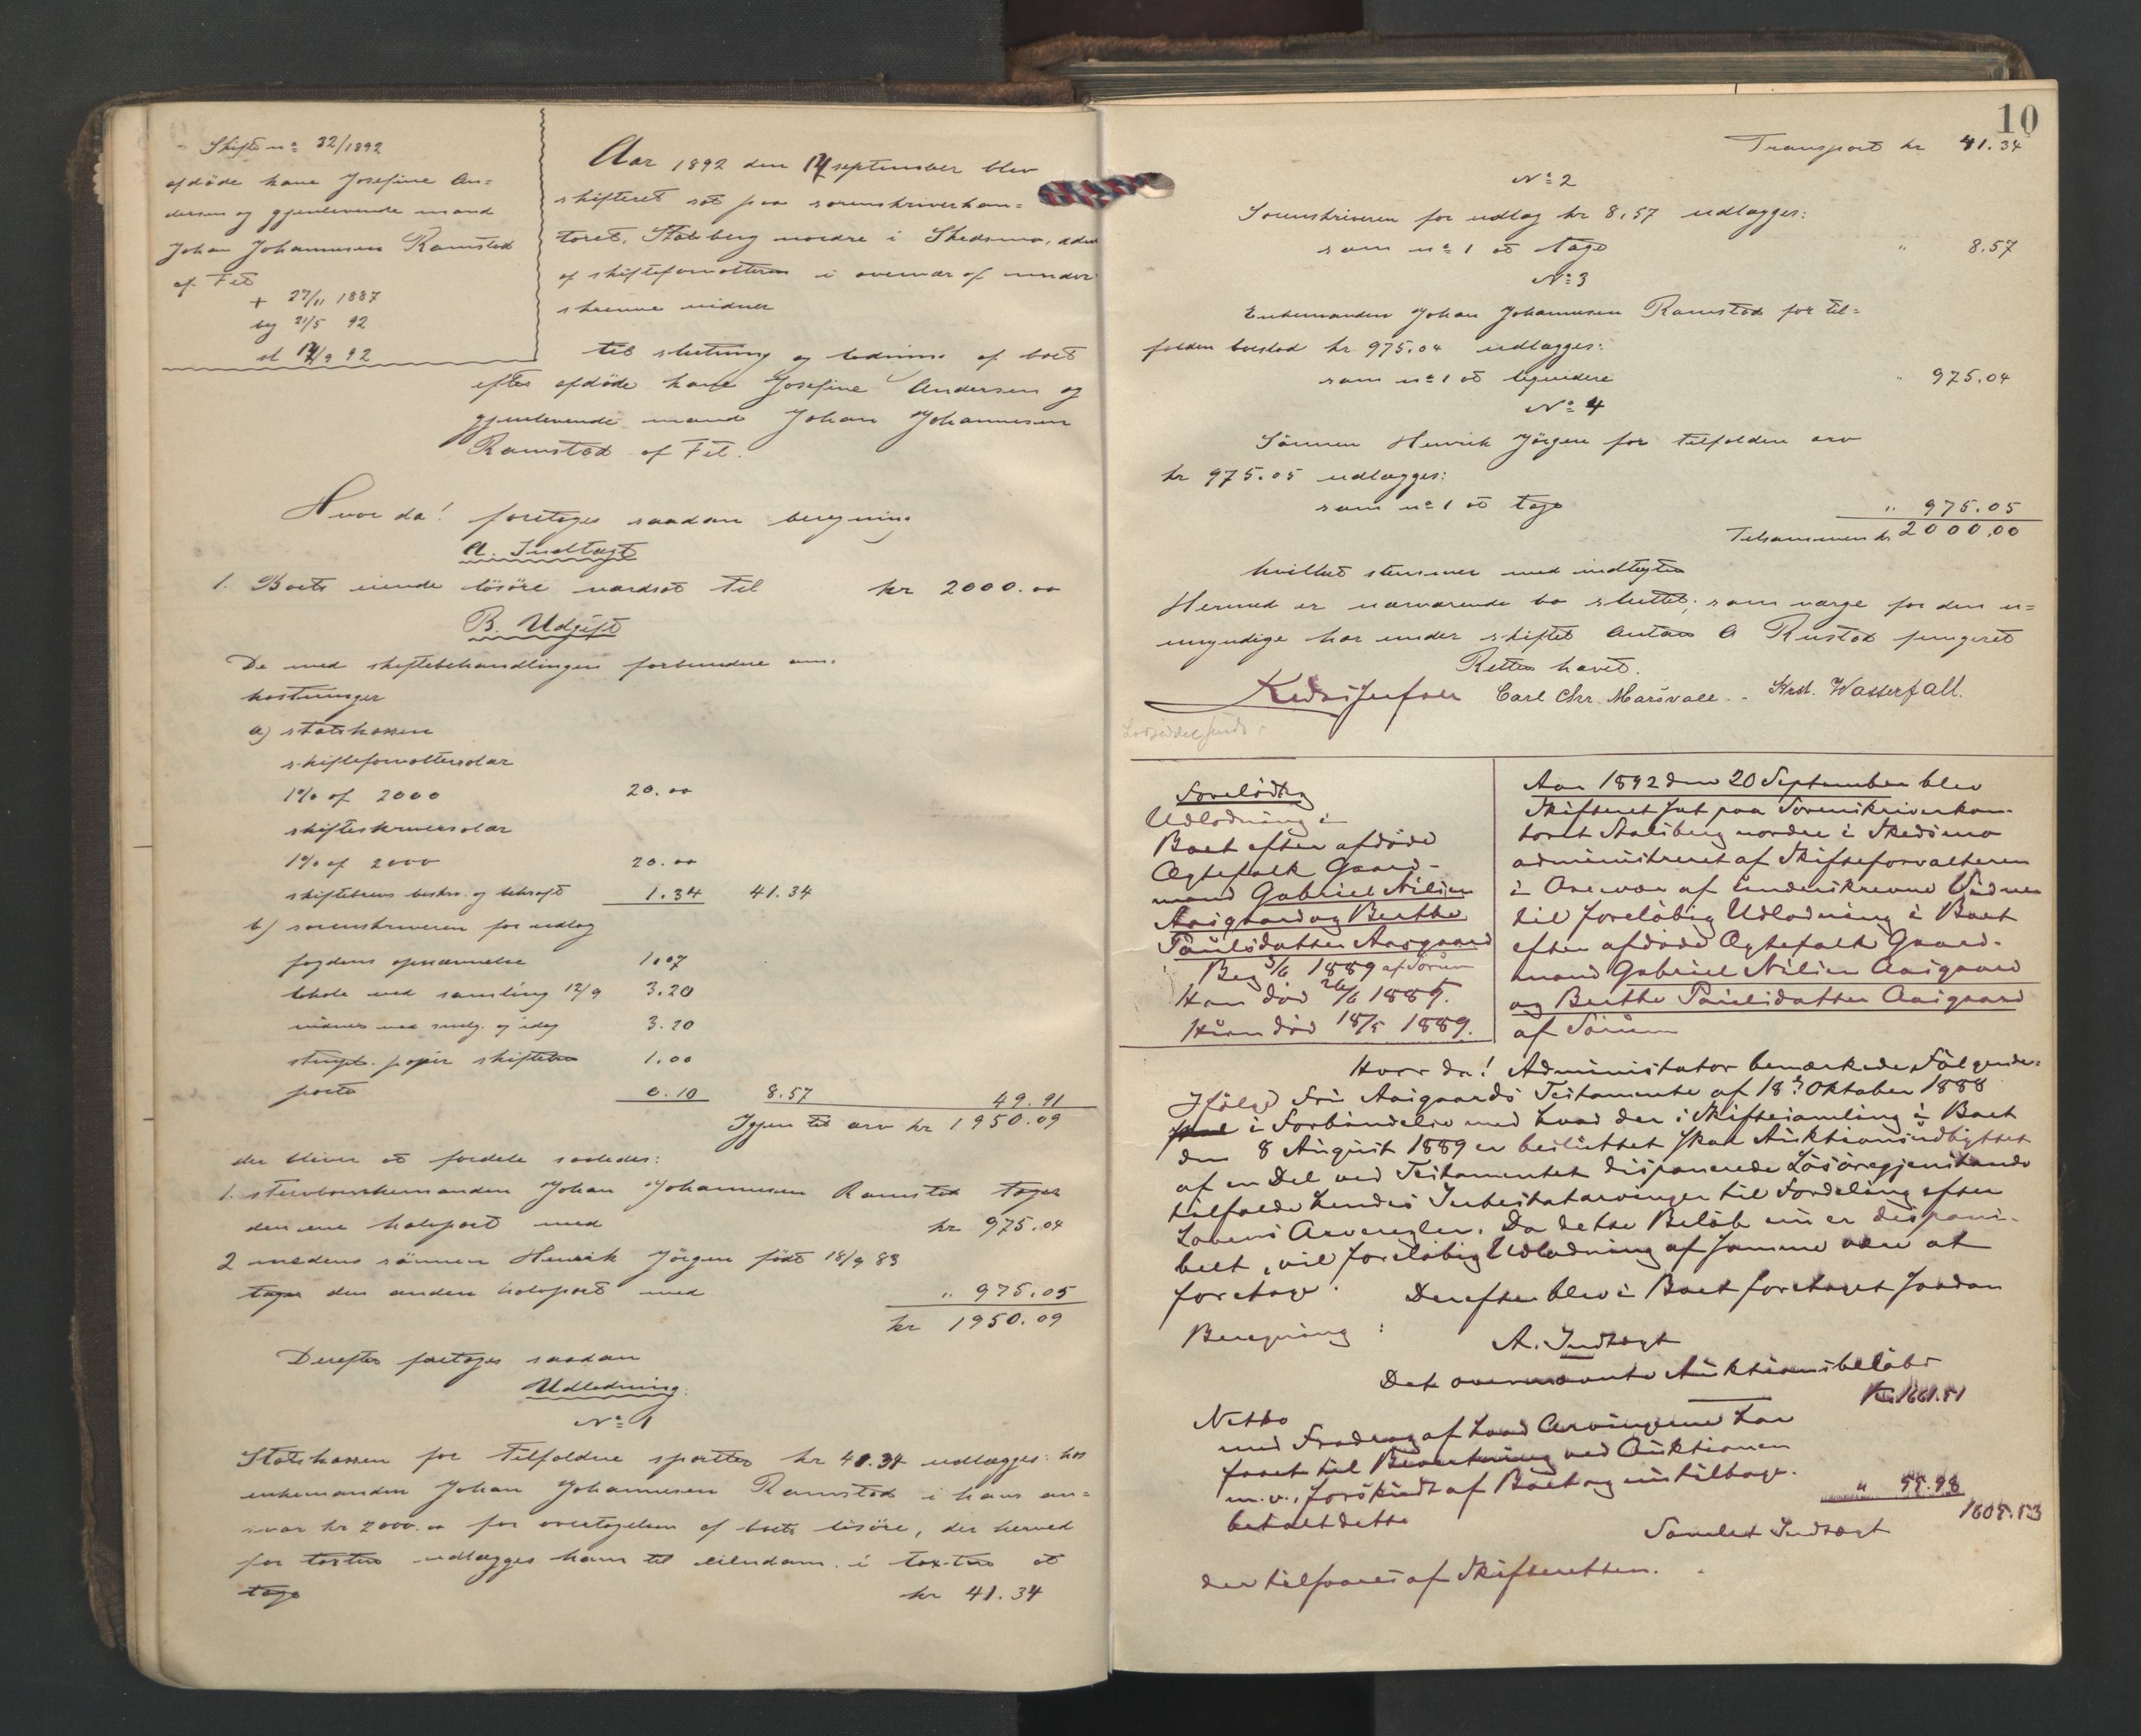 Skifte nº 32/1892
afdöde kone Josefine An=
dersen og gjenlevende mand
Johan Johannesen Ramstad
af Fet
+ 27/11 1887
beg 21/5 92
sl 14/9 92
Aar 1892 den 14 september blev
skifteret sat paa sorenskriverkon=
toret, Stalsberg nordre i Skedsmo, adm
af skifteforvalteren i overvær af under
skrevne vidner
til slutning og lodning af boet
efter afdöde kone Josefine Andersen og
gjenlevende mand Johan Johannesen
Ramstad af Fet.
Hvor da! foretoges saadan beregning
A. Indtægt
1. Boets eiende lösöre værdsat til kr 2000.00
B. Udgift
De med skiftebehandlingen forbundne om=
kostninger
a) statskassen
skifteforvaltersalær
1% af 2000 20.00
skifteskriversalær
1% af 2000 20.00
skiftebrevs beskr. og bekræft 1.34 41.34
b) sorenskriveren for udlag
fogdens opnævnelse 1.07
lokale ved samling 12/9 3.20
vidner ved samlg. og idag 3.20
stempl. papir skiftebr 1.00
porto 0.10 8.57 49.91
Igjen til arv kr 1950.09
der bliver at fordele saaledes:
1. stervboenkemanden Johan Johannesen Ramstad tager
den ene halvpart med kr 975.04
2 medens sönnen Henrik Jörgen födt 18/9 83
tager den anden halvpart med " 975.05
kr 1950.09
Derefter foretoges saadan
Udlodning.
Nº 1
Statskassen for tilfaldne sportler kr 41.34 udlægges: hos
enkemanden Johan Johannesen Ramstad i hans an=
svar kr 2000.00 for overtagelsen af boets lösöre, der herved
for taxten udlægges ham til eiendom. i taxten at
tage kr 41.34
10
Transport kr 41.34
Nº 2
Sorenskriveren for udlag kr 8,57 udlægges:
som nº 1 at tage " 8.57
Nº 3
Enkemanden Johan Johannesen Ramstad for til=
falden boeslod kr 975.04 udlægges:
som nº 1 at liqvidere " 975.04
Nº 4
Sönnen Henrik Jörgen for tilfalden arv
kr 975.05 udlægges:
som nº 1 at tage " 975.05
Tilsammen kr 2000,00
hvilket stemmer med indtægten
Hermed er nærværende bo sluttet; som værge for den u=
myndige har under skiftet Anton A Rustad fungeret
Retten hævet.
Carl Chr. Marsvale. Krist. Wasserfall.
Foreløbig
Udlodning i
Boet efter afdøde
Ægtefolk Gaard-
mand Gabriel Nilsen
Aasgaard og Berthe
Paulsdatter Aasgaard
Beg 3/6 1889 af Sørum
Han død 26/6 1885.
Hun død 18/5 1889.
Aar 1892 den 20 September blev
Skifteret sat paa Sorenskriverkon-
toret Stalsberg nordre i Skedsmo
administreret af Skifteforvalteren
i Overvær af underskrevne Vidner
til foreløbig Udlodning i Boet
efter afdøde Ægtefolk Gaard-
mand Gabriel Nilsen Aasgaard
og Berthe Paulsdatter Aasgaard
af Sørum
Hvor da! Administrator bemærkede Følgende:
Ifølge Fru Aasgaards Testamente af 18de Oktober 1888
i Forbindelse med hvad der i Skiftesamling i Boet
den 8 August 1889 er besluttet skal Auktionsudbyttet
af en Del ved Testamentet disponerede Løsøregjenstande
tilfalde hendes Intestatarvinger til Fordeling efter
Lovens Arveregler. Da dette Beløb nu er disponi-
belt, vil foreløbig Udlodning af samme være at
foretage. Derefter blev i Boet foretaget saadan
Beregning:
A. Indtægt
Det ovennævnte Auktionsbeløb
Netto Kr. 1661.51
med Fradrag af hvad Arvingerne har
faaet til Bevertning ved Auktionen
m.v., forskudt af Boet og nu tilbage-
betalt dette " 55.98
Samlet Indtægt 1605.53
der tilsvares af Skifteretten.